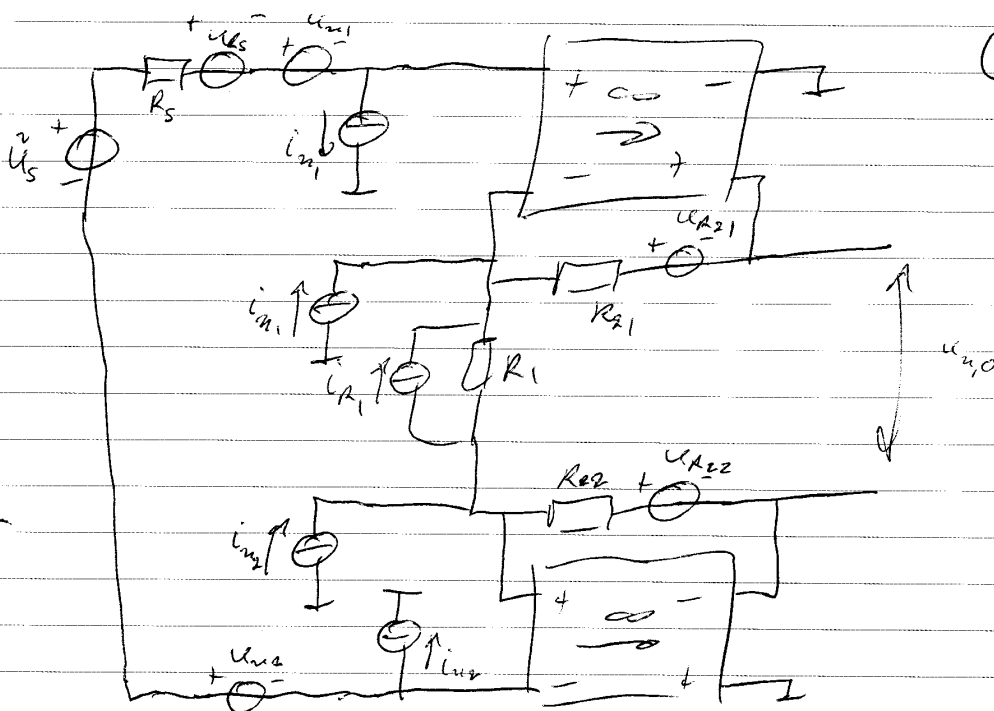 + u_Rs -
+ u_n1 -
(
R_s
+ ∞ -
i_n1
+
u_s
-
- +
+ u_R21 -
R_21
i_n1
i_R1
R_1
u_n,o
R_22
+ u_R22 -
i_n2
+ ∞ -
i_n2
+ u_n2 -
- +